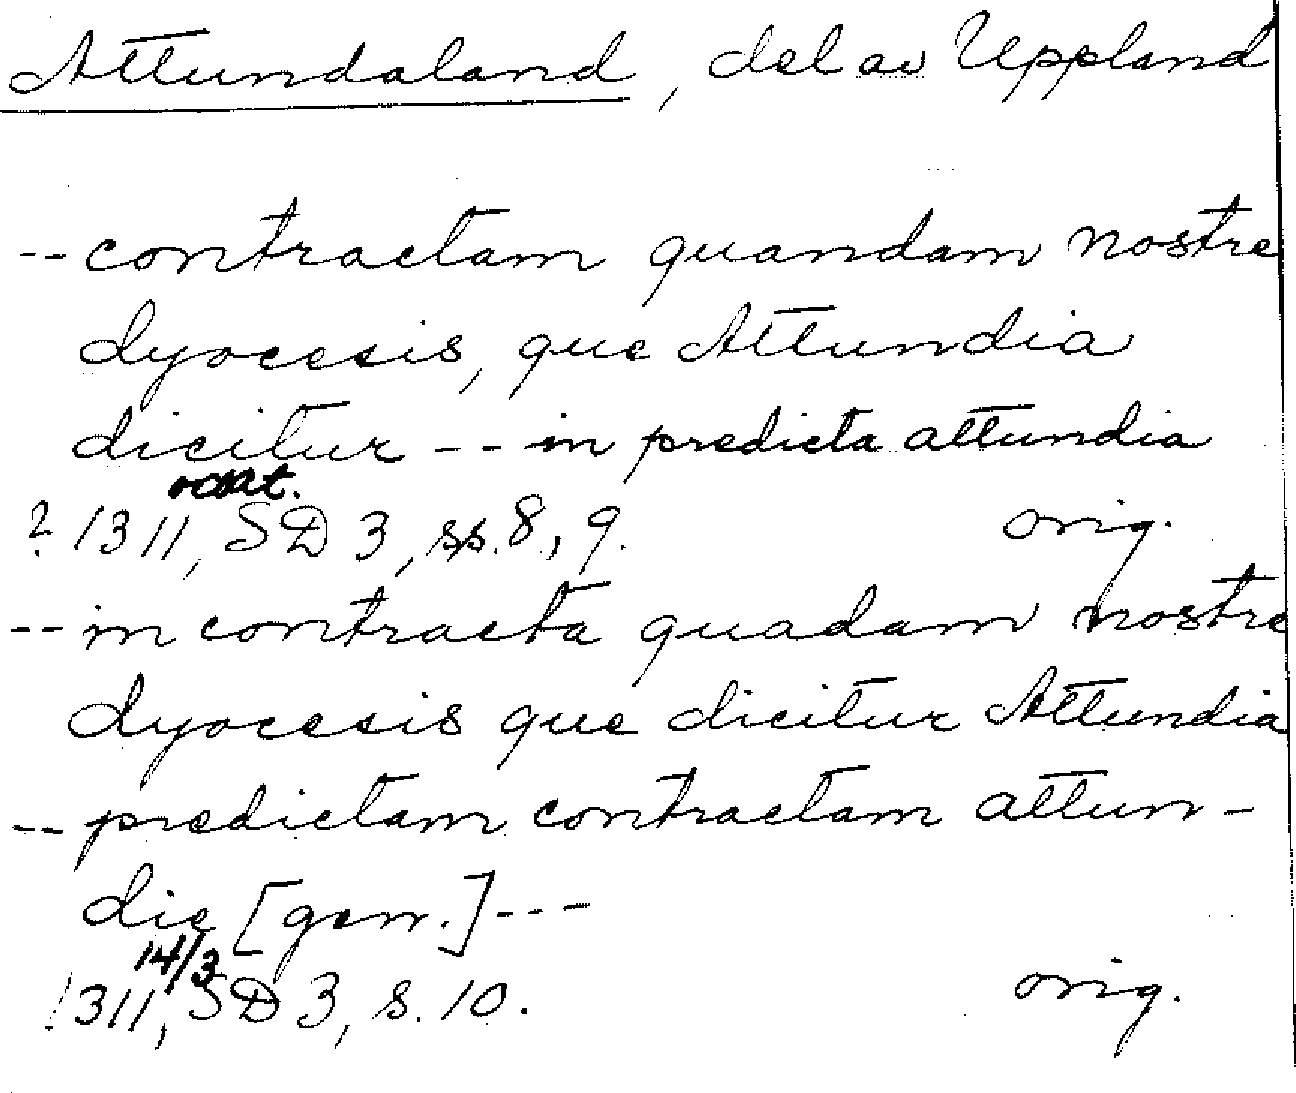 Attundaland, del av Uppland
-- contractam quandam nostre
dyocesis, que Attundia
dicitur -- in predicta attundia
odat.
? 1311, SD 3, ss. 8, 9. orig.
-- in contracta quadam nostre
dyocesis que dicitur Attundia
-- predictam contractam attun-
die [gen.] ---
14/3
1311, SD 3, s. 10. orig.